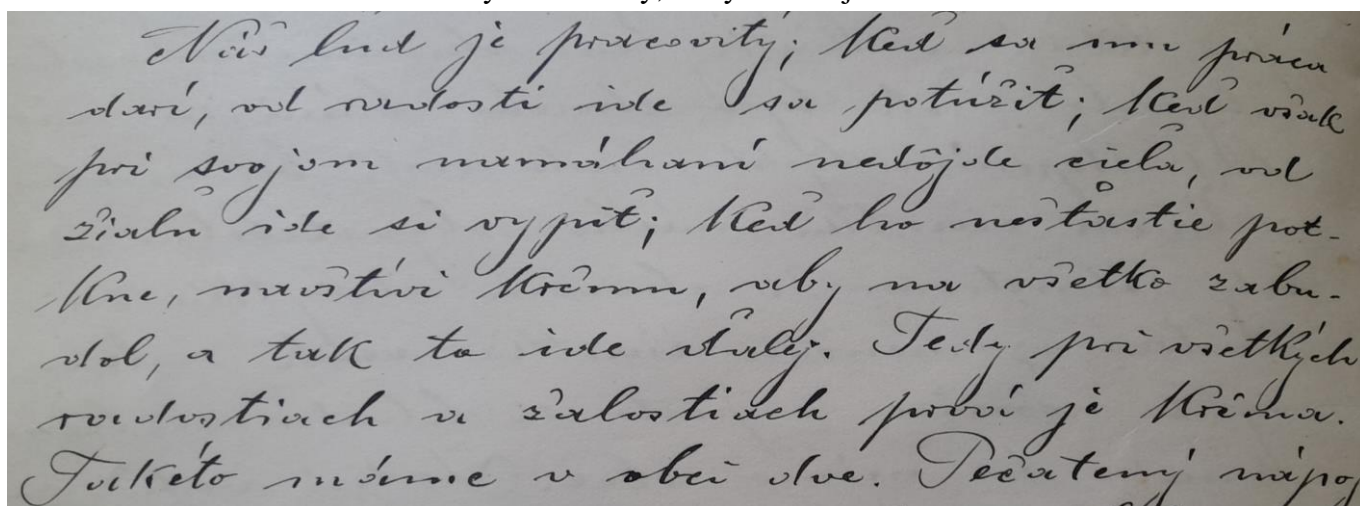 Náš ľud je pracovitý; keď sa mu práca
darí, od radosti ide sa potúžiť; keď však
pri svojom namáhaní nedôjde cieľa, od
žiaľu ide si vypiť; keď ho nešťastie pot-
kne, navštívi krčmu, aby na všetko zabu-
dol, a tak to ide ďalej. Tedy pri všetkých
radostiach a žalostiach prvá je krčma.
Takéto máme v obci dve. Pečatený nápoj